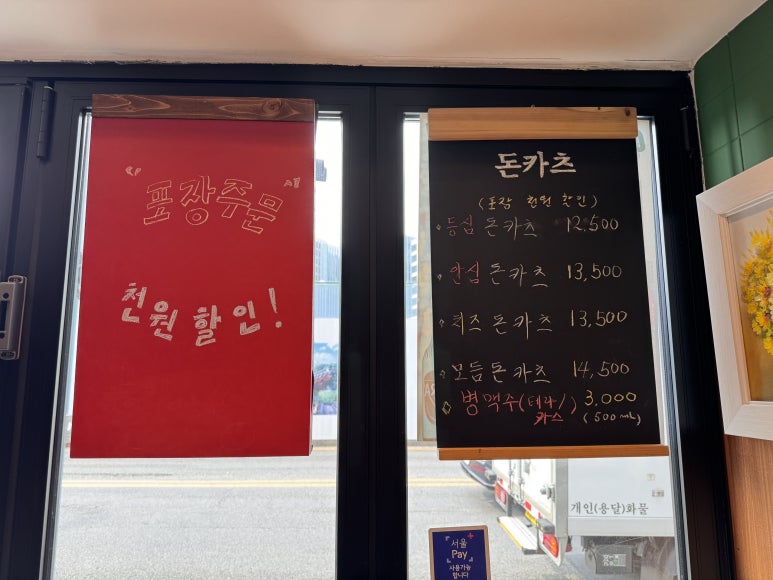 "포장주문"
천원 할인!
돈카츠
(포장 천원 할인)
등심 돈카츠 12,500
안심 돈카츠 13,500
치즈 돈카츠 13,500
모듬 돈카츠 14,500
병맥주(테라/카스) 3,000
(500mL)
개인(용달)화물
서울
Pay
사용가능
합니다